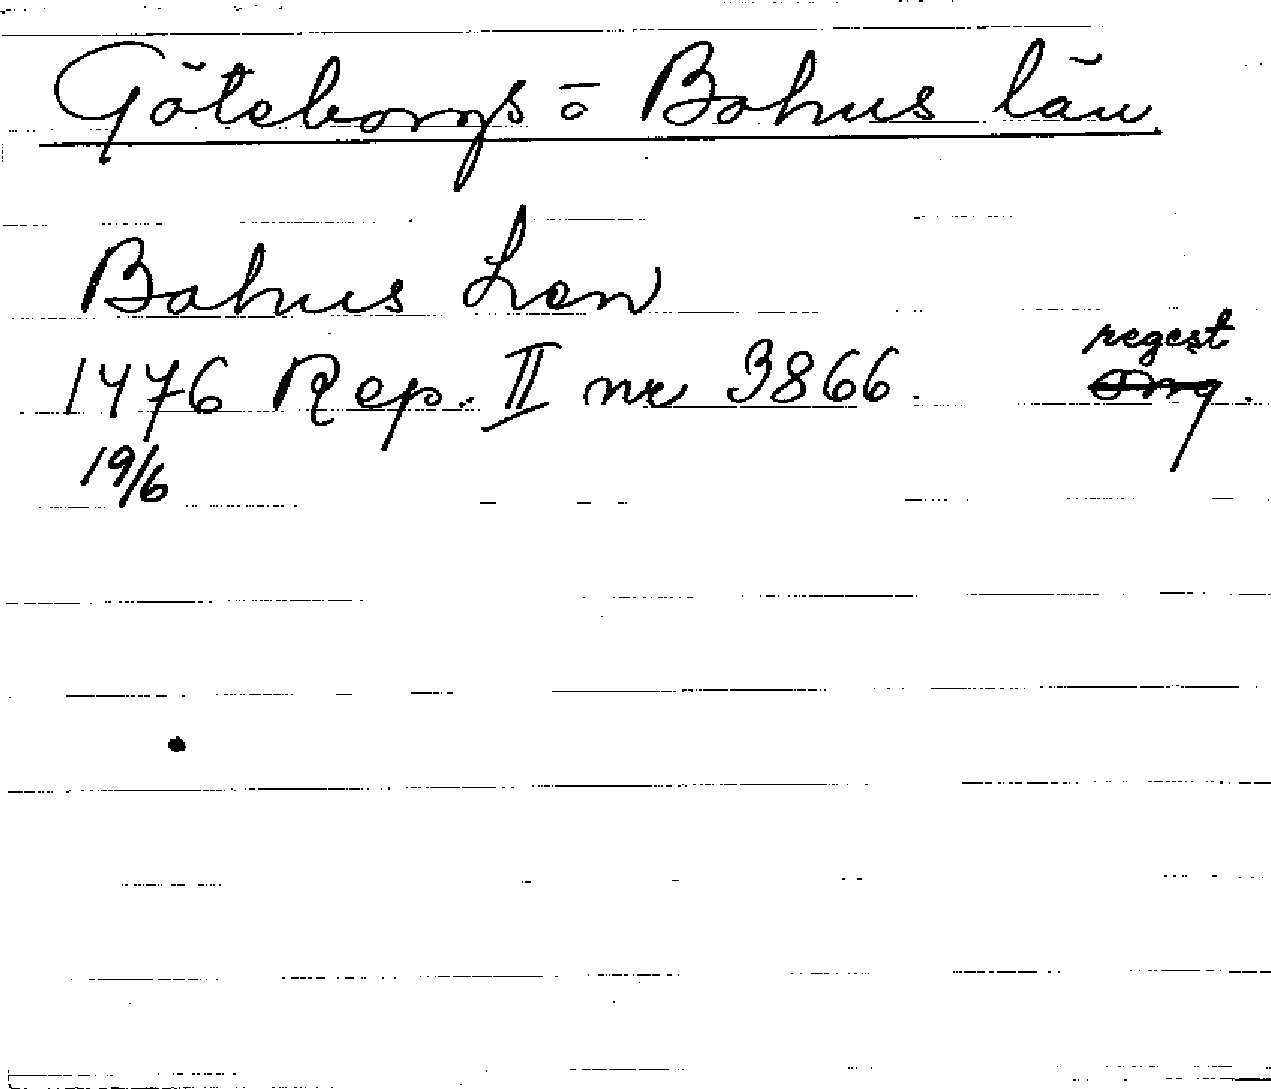 Göteborgs o Bohus län
Bahus Len
regest
1476 Rep. II nr 3866. Orig.
19/6